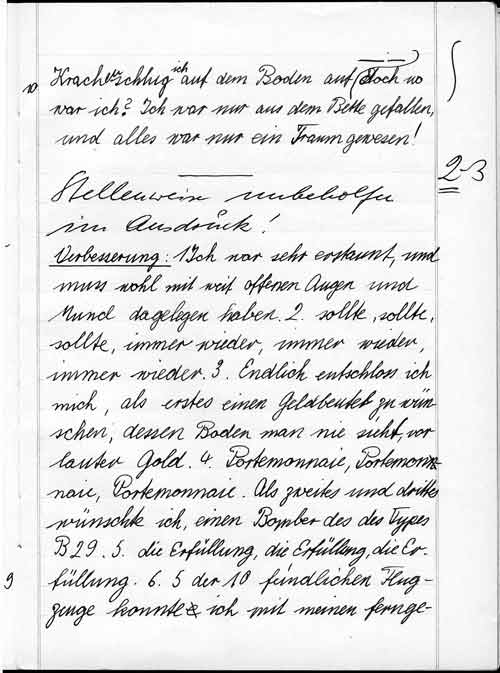 10 Krach! schlug ich auf dem Boden auf. Doch wo
war ich? Ich war nur aus dem Bette gefallen,
und alles war nur ein Traum gewesen!
2-3
Stellenweise unbeholfen
im Ausdruck!
Verbesserung: 1 Ich war sehr erstaunt, und
muss wohl mit weit offenen Augen und
Mund dagelegen haben. 2. sollte, sollte,
sollte, immer wieder, immer wieder,
immer wieder. 3. Endlich entschloss ich
mich, als erstes einen Geldbeutel zu wün-
schen, dessen Boden man nie sieht, vor
lauter Gold. 4. Portemonnaie, Portemon-
naie, Portemonnaie. Als zweites und drittes
wünschte ich, einen Bomber des des Types
B 29. 5. die Erfüllung, die Erfüllung, die Er-
füllung. 6. 5 der 10 feindlichen Flug-
9 zeuge konnte ich mit meinen fernge-